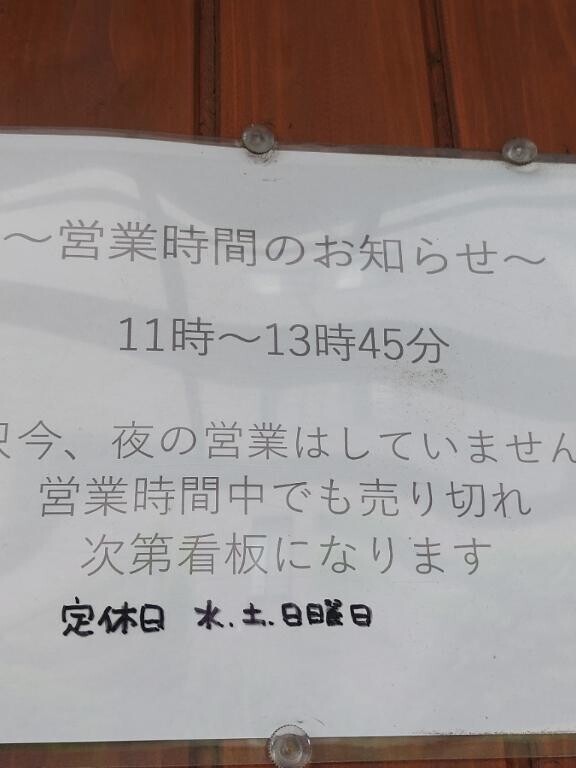 ～営業時間のお知らせ～
11時～13時45分
只今、夜の営業はしていません
営業時間中でも売り切れ
次第看板になります
定休日 水.土.日曜日